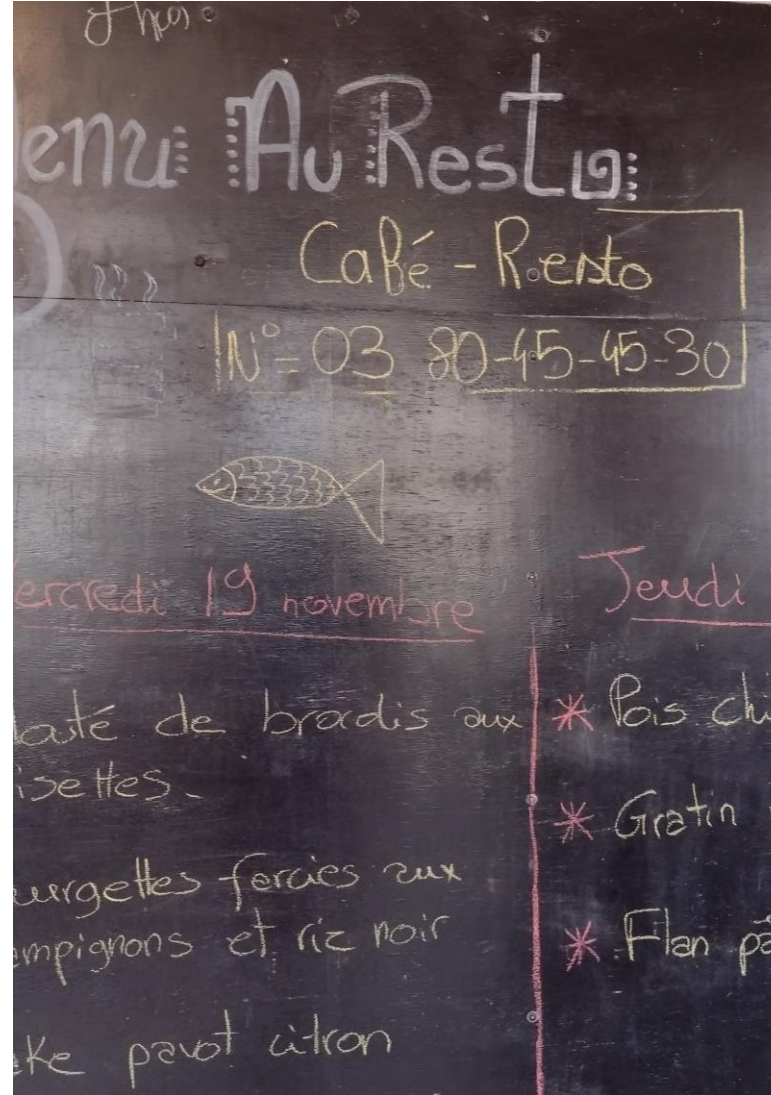 enu Au Resto
Café - Resto
N°= 03 80-45-45-30
ercredi 19 novembre
outé de bradis aux
isettes.
urgettes farcies aux
mpignons et riz noir
ake pavot citron
Jeudi
* Pois chi
* Gratin
* Flan pâ